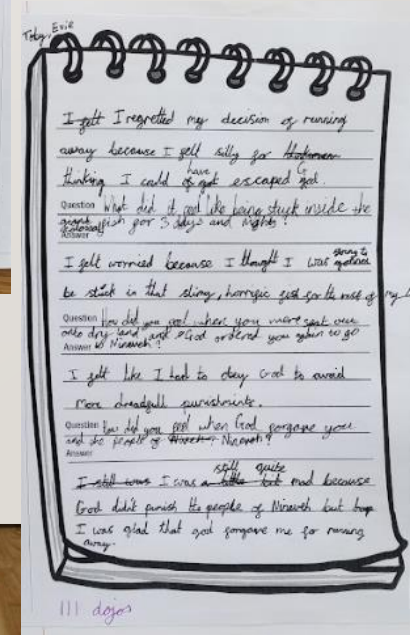 Toby, Evie
I felt I regretted my decision of running
away because I felt silly for
thinking I could have escaped God.
Question What did it feel like being stuck inside the
fish for 3 days and nights?
Answer
I felt worried because I thought I was going to
be stuck in that slimy, horrific fish for the rest of my
Question How did you feel when you were spat out
onto dry land and God ordered you again to go
Answer to Nineveh?
I felt like I had to obey God to avoid
more dreadfull punishments.
Question How did you feel when God forgave you
and the people of Nineveh?
Answer
I was still quite mad because
God didn't punish the people of Nineveh but
I was glad that god forgave me for running
away.
111 dojos